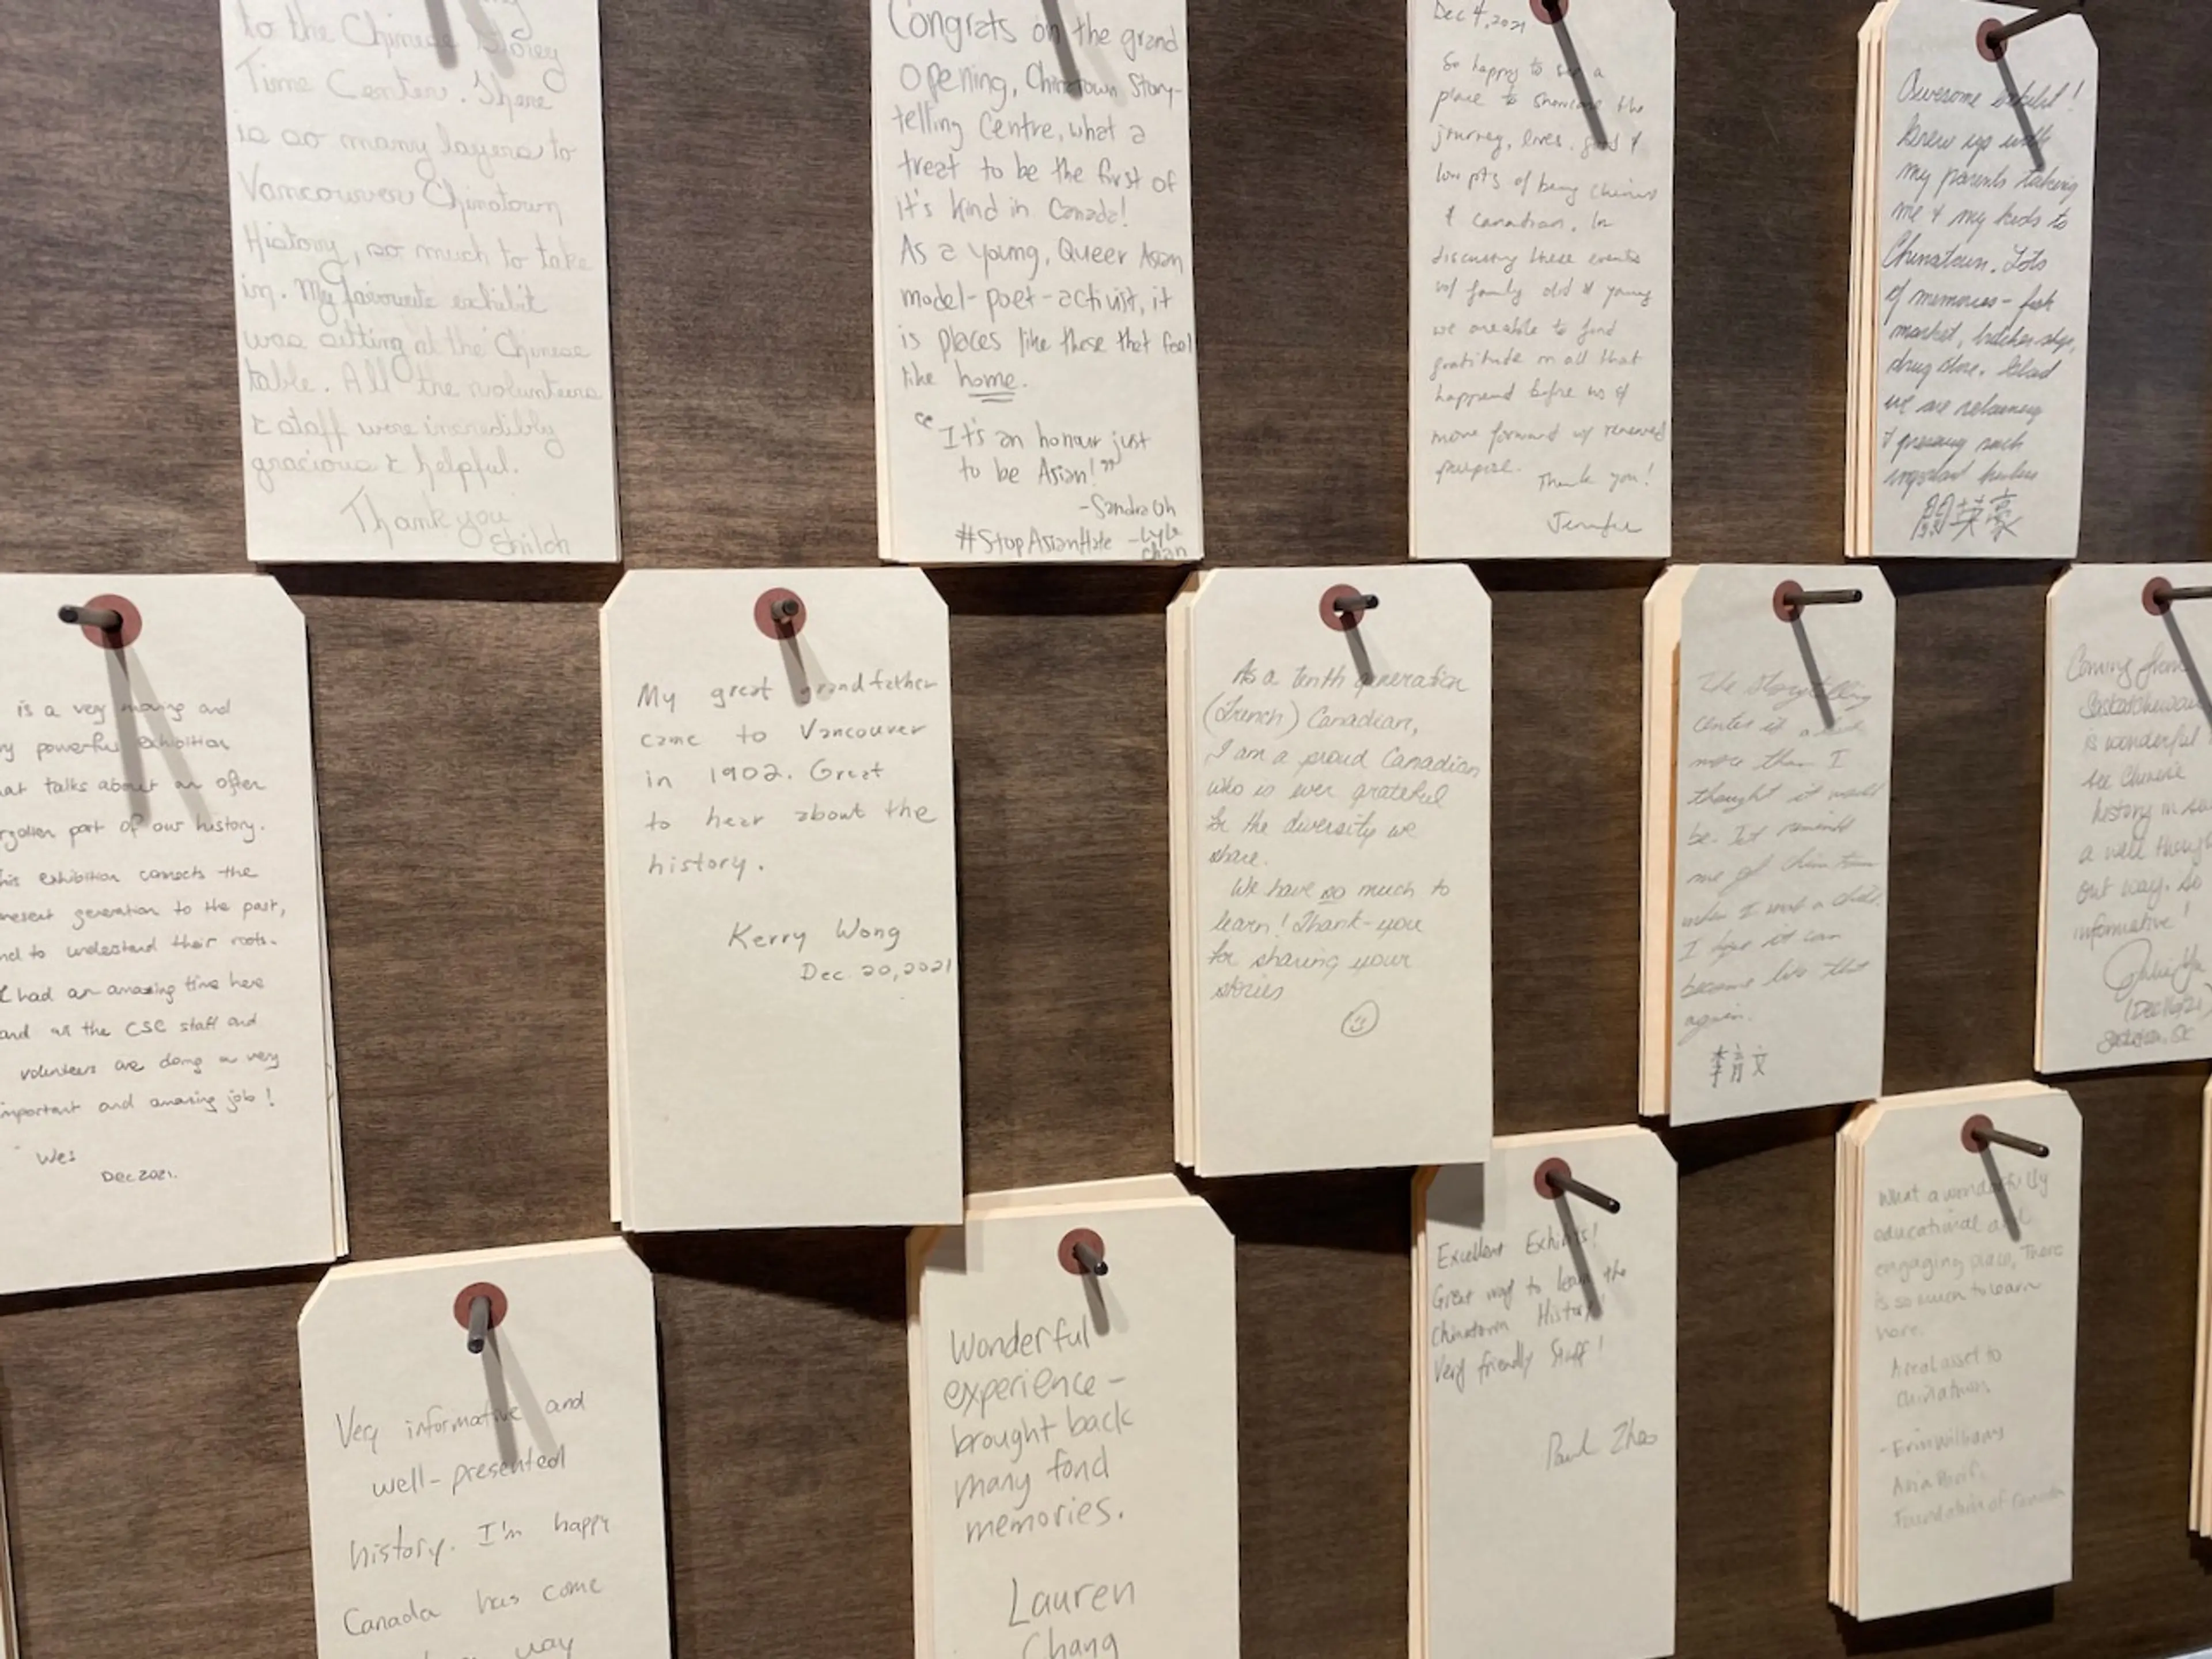 to the Chinese Storey
Time Center. There
is so many layers to
Vancouver Chinatown
History, so much to take
in. My favourite exhibit
was sitting at the Chinese
table. All the volunteers
& staff were incredibly
gracious & helpful.
Thank you
Congrats on the grand
opening, Chinatown Story-
telling Centre, what a
treat to be the first of
it's kind in Canada!
As a young, Queer Asian
model-poet-activist, it
is places like these that feel
like home.
"It's an honour just
to be Asian!"
-Sandra Oh
#StopAsianHate -Lyle
Chan
Dec 4, 2021
So happy to see a
place to showcase the
journey, lives, good &
low pts of being Chinese
& Canadian. In
discussing these events
w/ family old & young
we are able to find
gratitude in all that
happened before us &
move forward w/ renewed
purpose. Thank you!
Jennifer
Awesome exhibit!
Grew up with
my parents taking
me & my kids to
Chinatown. Lots
of memories - fish
market, butcher shop,
drug store. Glad
we are
&  such
important
英豪
is a very moving and
powerful exhibition
talks about an often
part of our history.
exhibition connects the
generation to the past,
to understand their roots.
I had an amazing time here
and all the CSC staff and
volunteers are doing a very
important and amazing job!
Wes
Dec 2021.
My great grandfather
came to Vancouver
in 1902. Great
to hear about the
history.
Kerry Wong
Dec. 20, 2021
As a tenth generation
(French) Canadian,
I am a proud Canadian
who is ever grateful
for the diversity we
share.
We have so much to
learn! Thank-you
for sharing your
stories
The Storytelling
Center is a lot
more than I
thought it would
be. It remind
me of Chinatown
when I was a child.
I hope it can
become like that
again.
李育文
Coming from
Saskatchewan
is wonderful
see Chinese
history in
a well thought
out way. So
informative!
Very informative and
well-presented
history. I'm happy
Canada has come
way
Wonderful
experience -
brought back
many fond
memories.
Lauren
Chang
Excellent Exhibits!
Great way to learn the
Chinatown History!
Very friendly Staff!
Paul Zhao
What a wonderfully
educational and
engaging place, There
is so much to learn
here.
A real asset to
Chinatown
- Erin Williams
Asia Pacific
Foundation of Canada